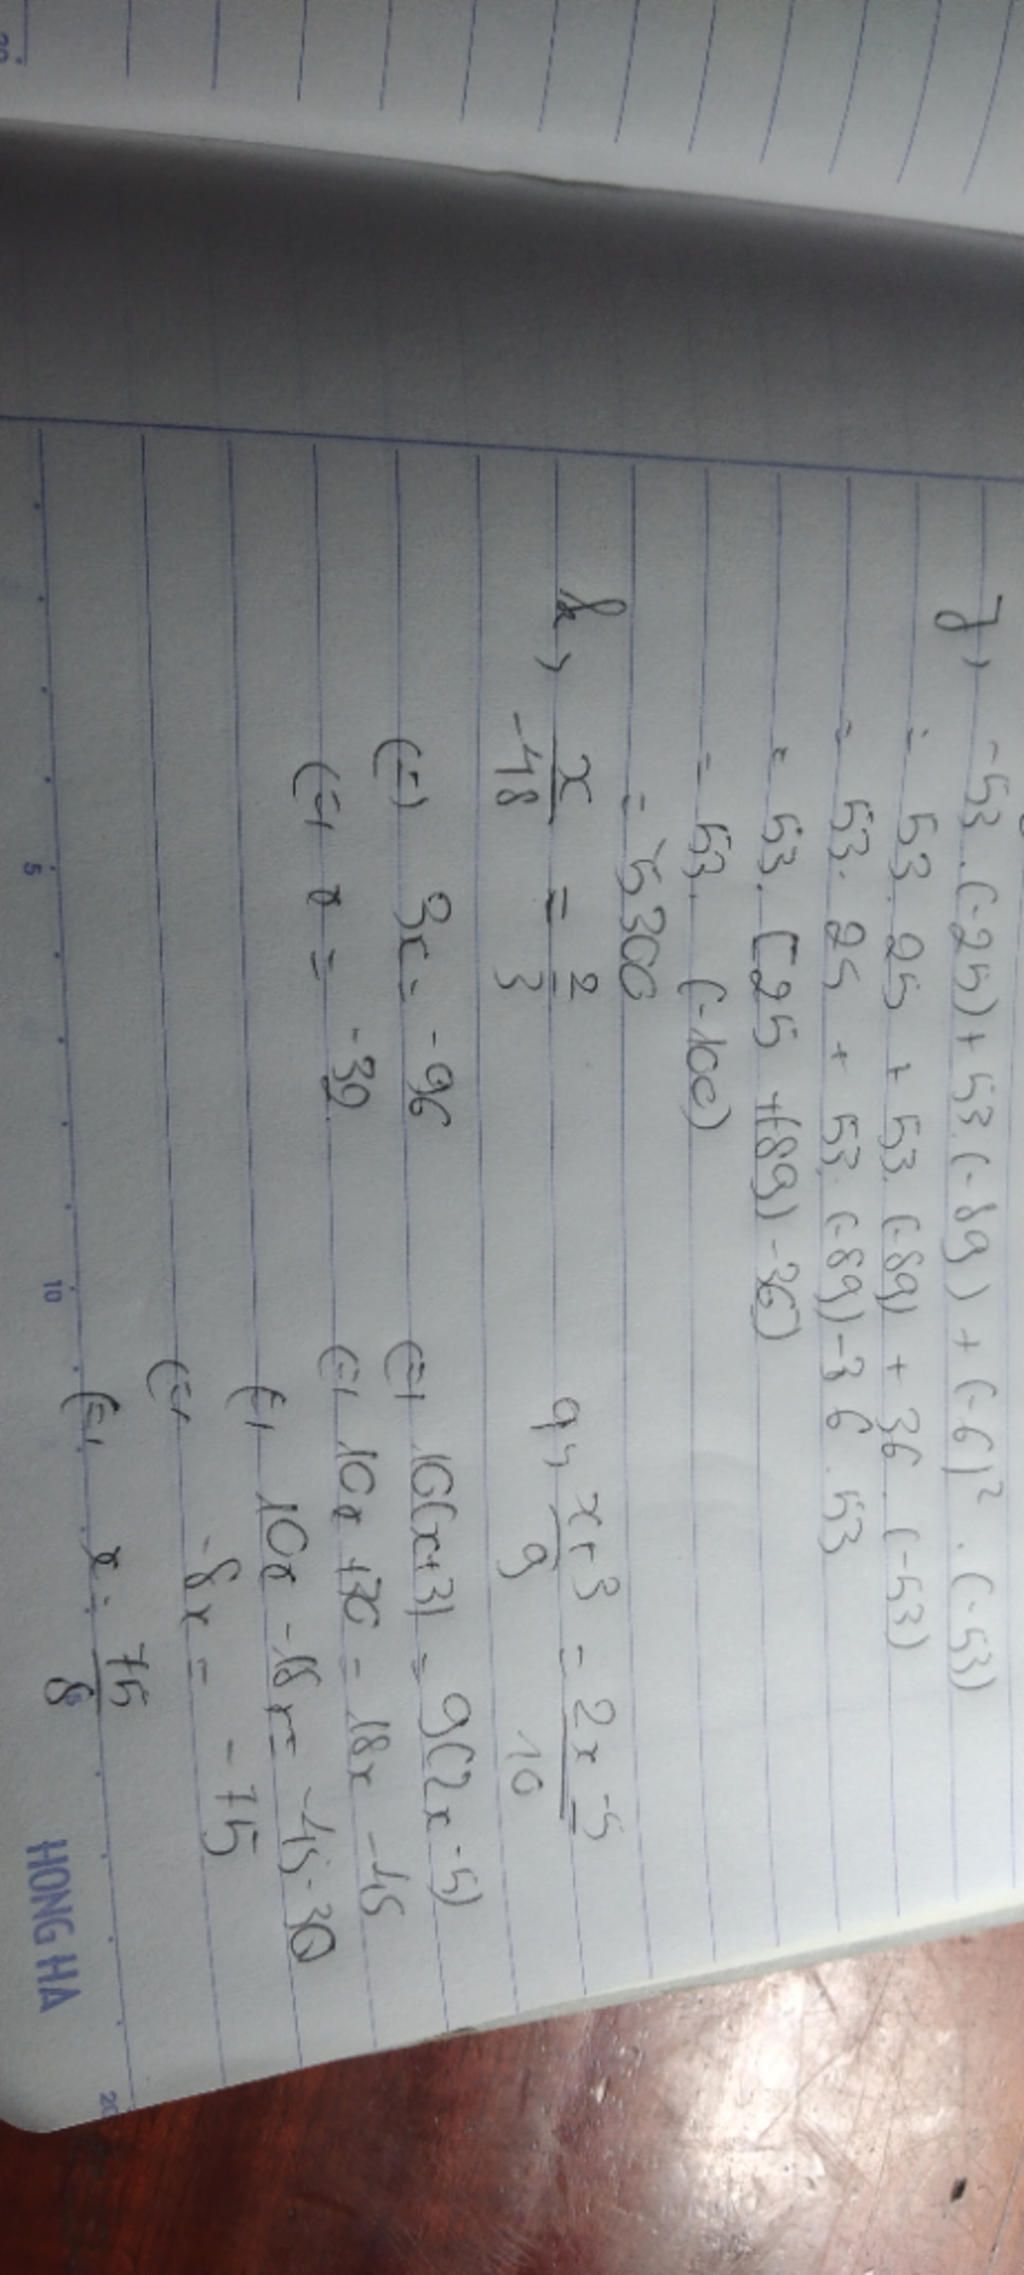 j, -53 . (-25) + 53 . (-89) + (-6)² . (-53)
= 53 . 25 + 53 . (-89) + 36 . (-53)
= 53 . 25 + 53 . (-89) - 36 . 53
= 53 . [25 + (89) - 36)
= 53 . (-100)
= -5300
k, x/-48 = 2/3
(=) 3x = -96
(=) x = -32
q, x+3/9 = 2x-5/10
(=) 10(x+3) = 9(2x-5)
(=) 10x + 30 = 18x - 45
(=) 10x - 18x = -45-30
(=) -8x = -75
(=) x = 75/8
5 10 20
HONG HA